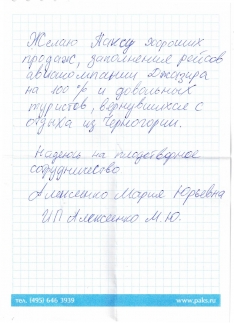 Желаю Паксу хороших
продаж, заполнения рейсов
авиакомпании Джазира
на 100% и довольных
туристов, вернувшихся с
отдыха из Черногории.
Надеюсь на плодотворное
сотрудничество
Алексеенко Мария Юрьевна
ИП Алексеенко М.Ю.
тел. (495) 646 3939
www.paks.ru